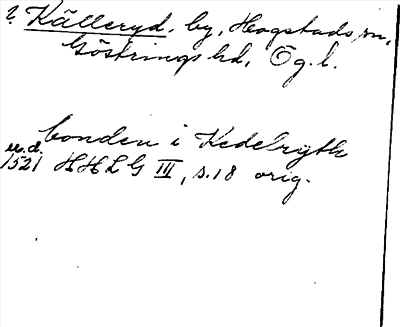 ? Källeryd. by, Hogstads sn,
Göstrings hd, Ög. l.
bonden i Kedelryth
u.d.
1521 HHLG III, s. 18 orig.